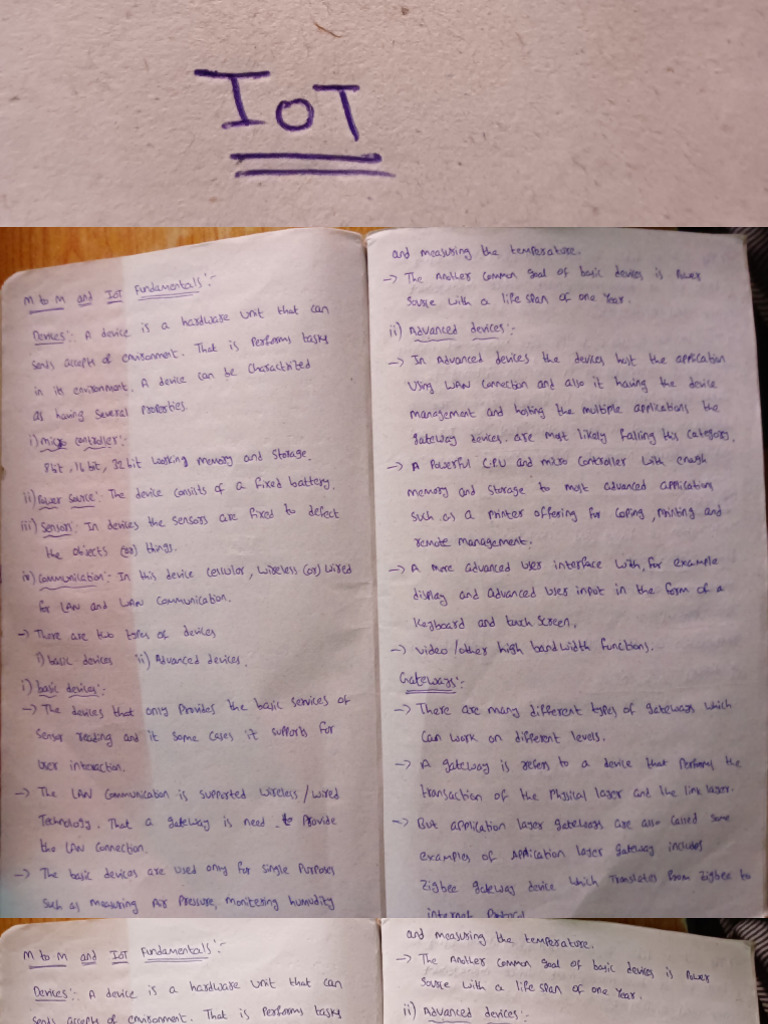 IOT
M to M and IOT Fundamentals:-
Devices:- A device is a hardware unit that can
sends accepts of environment. That is Performs tasks
in its environment. A device can be Charactrized
as having several Properties.
i) micro controller:-
8bit, 16 bit, 32 bit working memory and storage.
ii) Power source: The device consits of a fixed battery.
iii) sensors: In devices the sensors are fixed to defect
the objects (or) things.
iv) communication: In this device cellular, wireless (or) wired
for LAN and WAN communication.
→ There are two types of devices
i) basic devices ii) Advanced devices.
i) basic devices:-
→ The devices that only Provides the basic services of
sensor reading and it some cases it supports for
user interaction.
→ The LAN communication is supported wireless/wired
Technology. That a gateway is need to Provide
the LAN connection.
→ The basic devices are used only for single Purposes
such as measuring Air Pressure, monitering humudity
and measuring the temperature.
→ The Another common goal of basic devices is Power
Sourse with a life span of one Year.
ii) Advanced devices:-
→ In Advanced devices the devices host the application
Using WAN connection and also it having the device
management and hosting the multiple applications the
gateway devices. are most likely falling this category.
→ A Powerful C.P.U and micro controller with enugh
memory and storage to most advanced application
such as a Printer offering for coping, Printing and
remote management.
→ A more advanced user interface with, for example
display and advanced user input in the form of a
Keyboard and touch screen.
→ video/other high bandwidth functions.
Gateways:-
→ There are many different types of gateways which
can work on different levels.
→ A gateway is refers to a device that Performs the
transaction of the Physical layer and the link layer.
→ But application layer gateways are also called some
examples of Application layer gateway includes
Zigbee gateway device which Translates from Zigbee to
internet Protocol
M to M and IOT Fundamentals:-
Devices:- A device is a hardware unit that can
sends accepts of environment. That is Performs tasks
and measuring the temperature.
→ The Another common goal of basic devices is Power
Sourse with a life span of one Year.
ii) Advanced devices:-